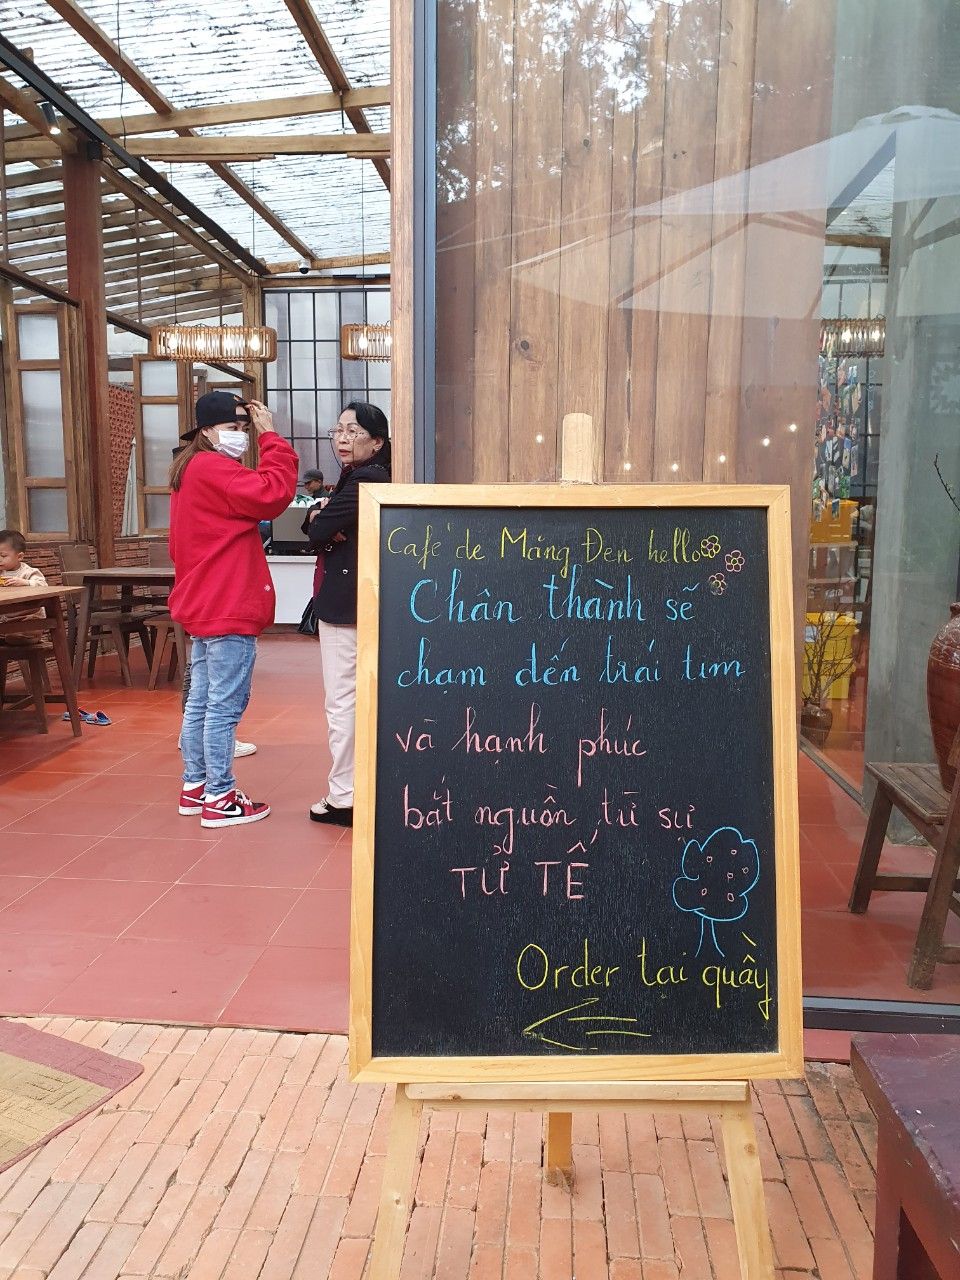 Café de Măng Đen hello
Chân thành sẽ
chạm đến trái tim
và hạnh phúc
bắt nguồn từ sự
TỬ TẾ
Order tại quầy